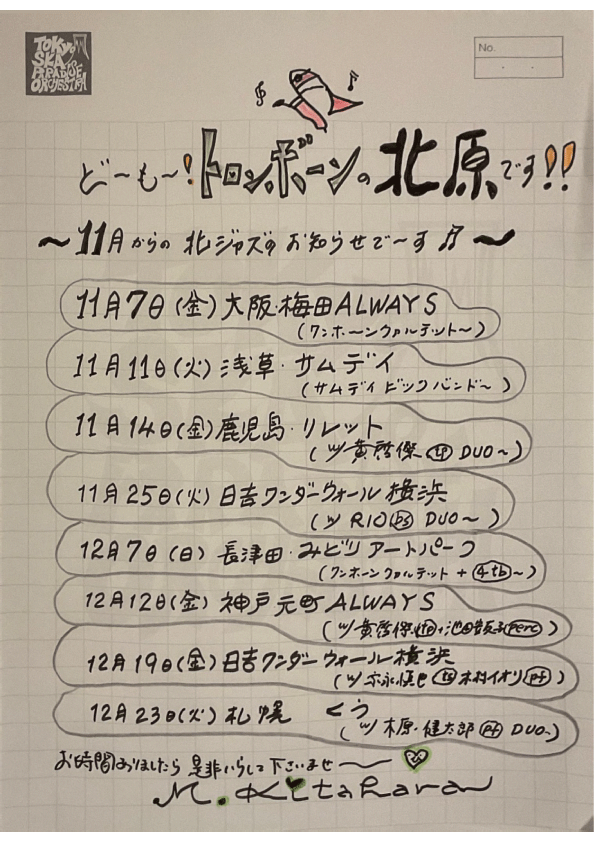 TOKYO
SKA
PARADISE
ORCHESTRA
No.
ど〜も〜!トロンボーンの北原です!!
〜11月からの北ジャズのお知らせで〜す♫〜
11月7日(金)大阪・梅田ALWAYS
(ワンホーンクァルテット〜)
11月11日(火)浅草・サムデイ
(サムデイビッグバンド〜)
11月14日(金)鹿児島・リレット
(ツ黄啓傑 tp DUO〜)
11月25日(火)日吉ワンダーウォール横浜
(ツ RIO bs DUO〜)
12月7日(日)長津田・みどりアートパーク
(ワンホーンクァルテット+4tb〜)
12月12日(金)神戸元町ALWAYS
(ツ黄啓傑 tp・池田 perc)
12月19日(金)日吉ワンダーウォール横浜
(ツ 木村イオリ pf)
12月23日(火)札幌 くう
(ツ木原・健太郎 pf DUO〜)
お時間ありましたら是非いらして下さいませ〜
M.Kitahara